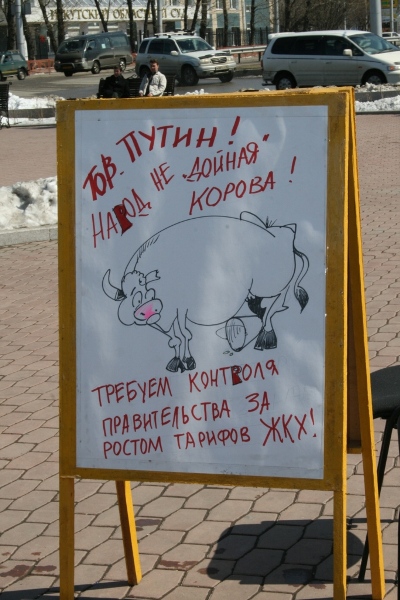 ИРКУТСКИЙ ОБЛАСТНОЙ СУД
Тов. ПУТИН!
НАРОД НЕ ДОЙНАЯ
КОРОВА!
ТРЕБУЕМ КОНТРОЛЯ
ПРАВИТЕЛЬСТВА ЗА
РОСТОМ ТАРИФОВ ЖКХ!